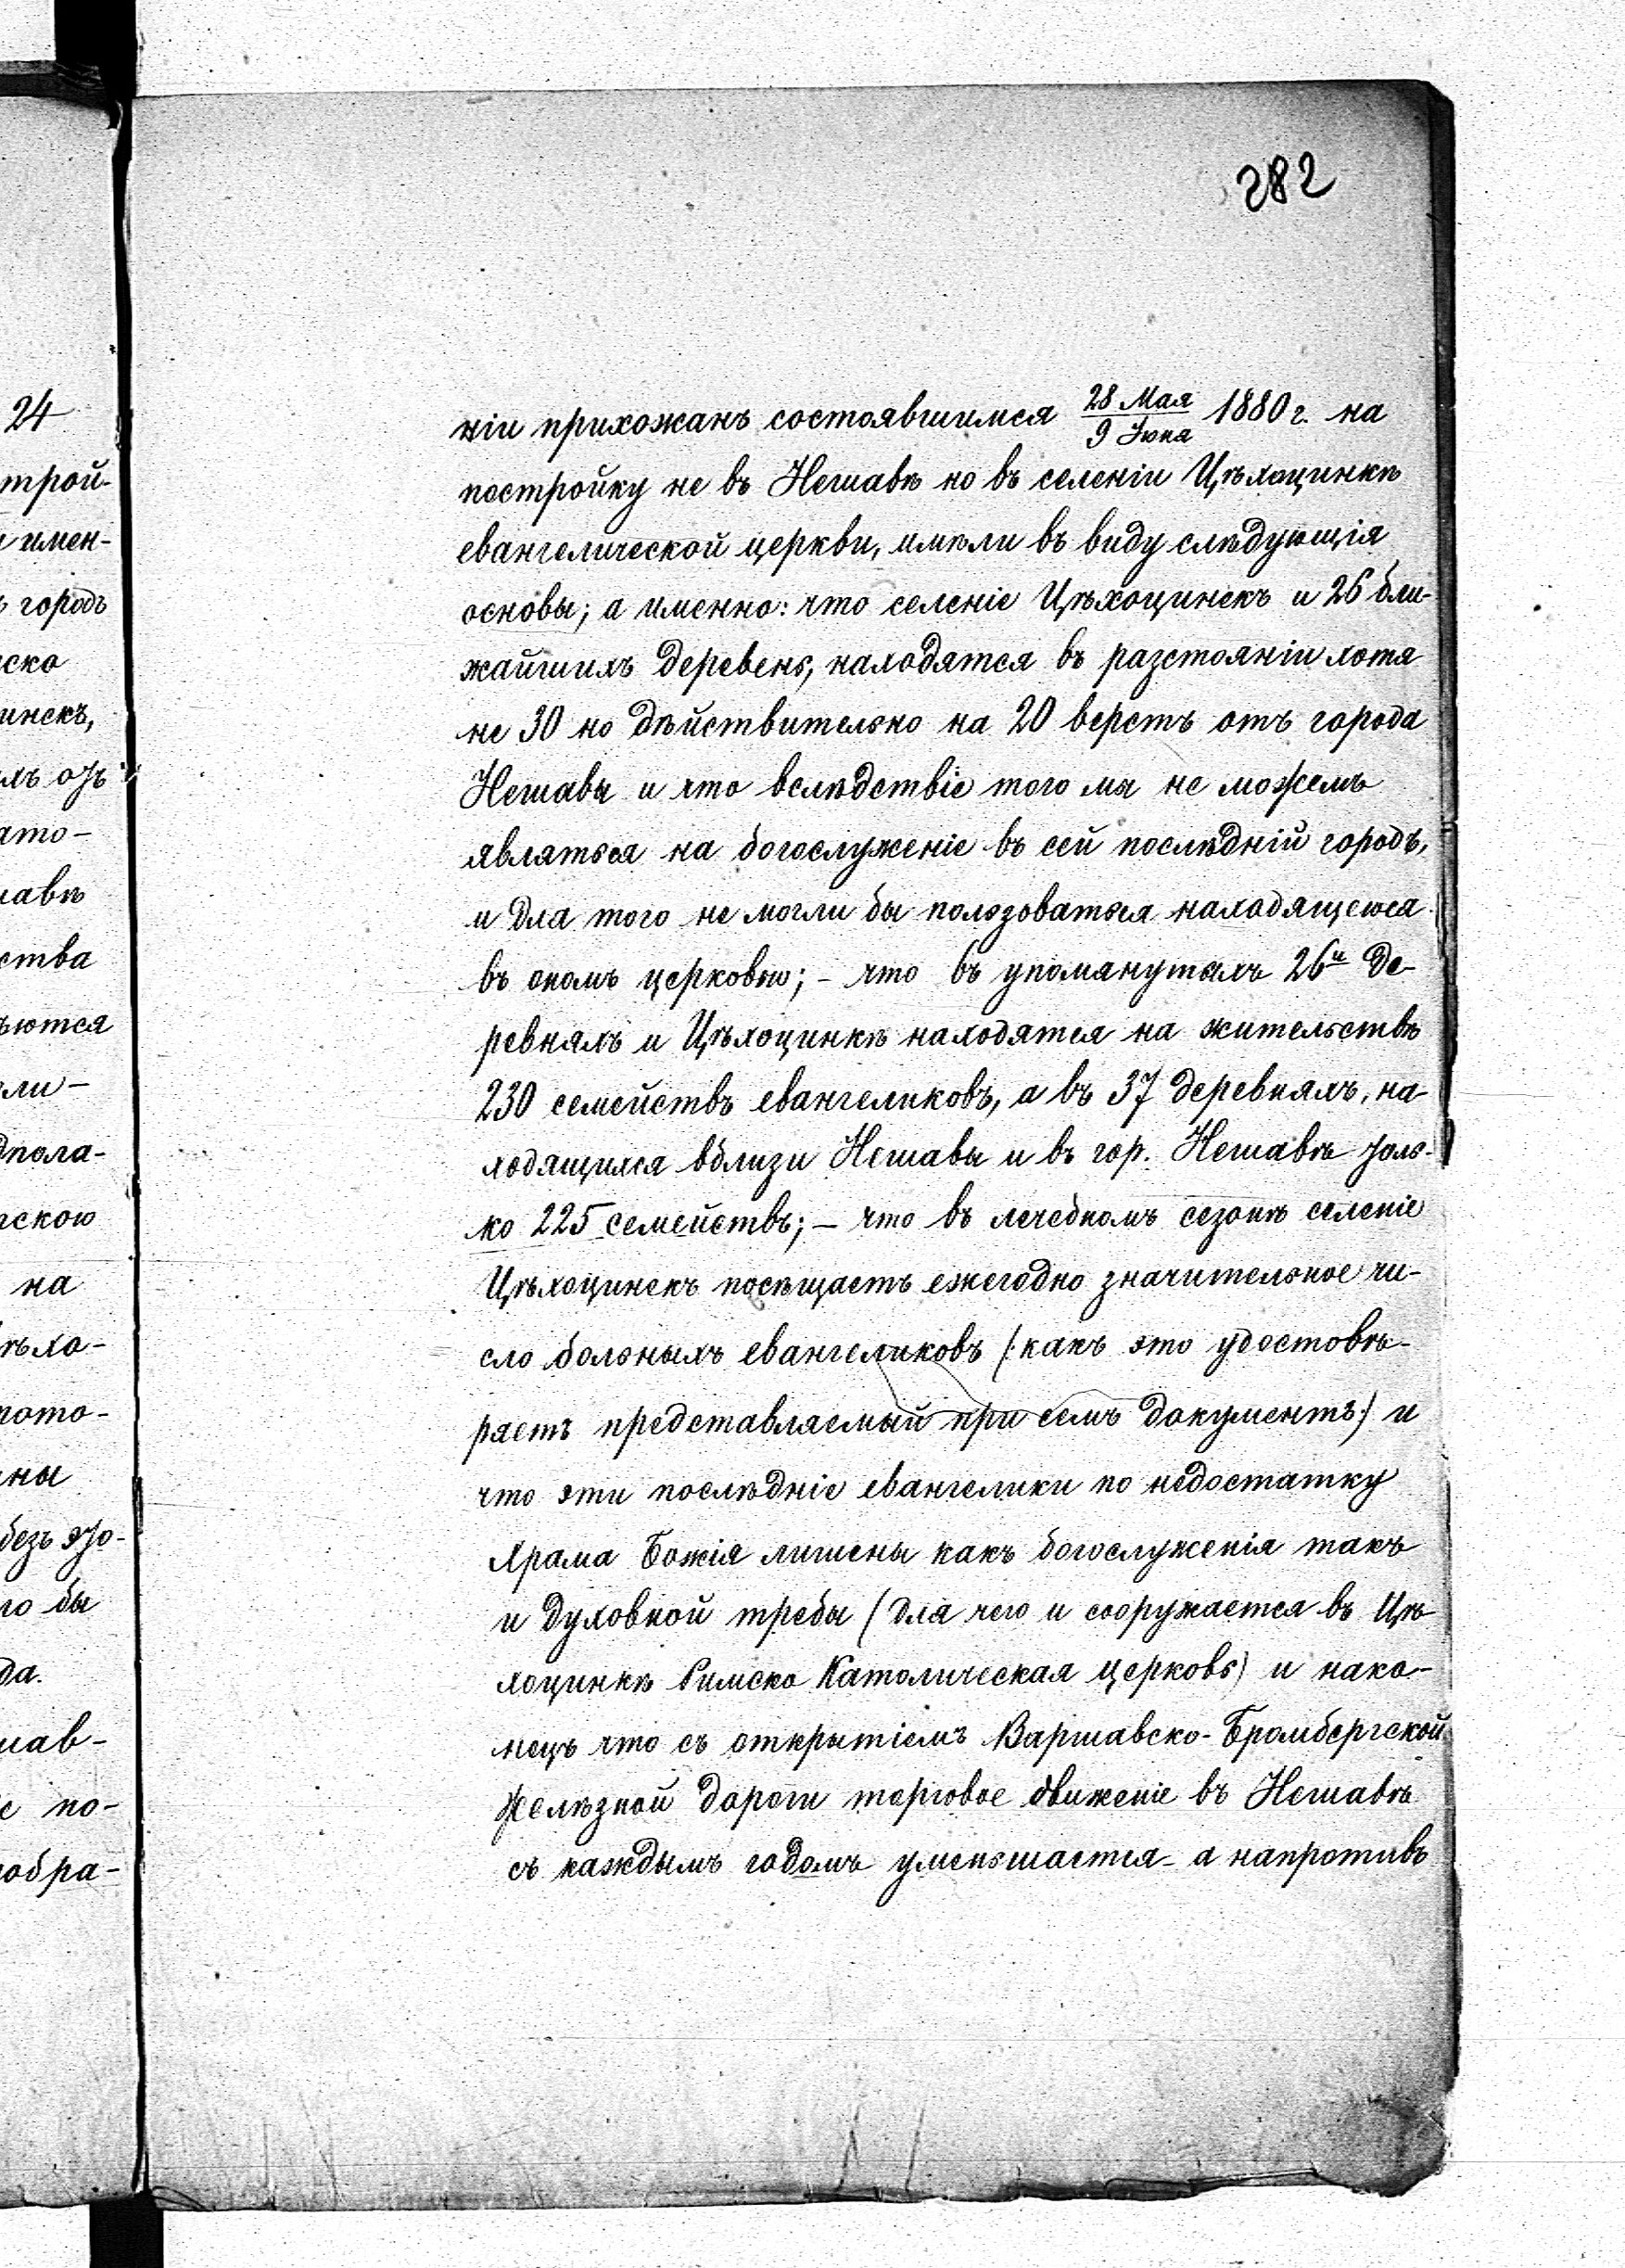 282
24
трой-
имен-
городъ
ско
инскъ,
ато-
шавѣ
ства
ются
ли-
дпола-
скою
на
ѣхо-
пото-
ны
безъ это-
го бы
да.
шав-
е по-
обра-
ніи прихожанъ состоявшимся 28 Мая/9 Іюня 1880 г. на
постройку не въ Нешавѣ но въ селеніи Цѣхоцинкѣ
евангелической церкви, имѣли въ виду слѣдующія
основы; а именно: что селеніе Цѣхоцинскъ и 26 бли-
жайшихъ деревень, находятся въ разстояніи хотя
не 30 но дѣйствительно на 20 верстъ отъ города
Нешавы и что вслѣдствіе того мы не можемъ
являться на богослуженіе въ сей послѣдній городъ,
и для того не могли бы пользоваться находящеюся
въ ономъ церковью; - что въ упомянутыхъ 26и де-
ревняхъ и Цѣхоцинкѣ находятся на жительствѣ
230 семействъ евангеликовъ, а въ 37 деревняхъ, на-
ходящихся вблизи Нешавы и въ гор. Нешавѣ толь-
ко 225 семействъ; - что въ лечебномъ сезонѣ селеніе
Цѣхоцинскъ посѣщаетъ ежегодно значительное чи-
сло больныхъ евангеликовъ (:какъ это удостовѣ-
ряетъ представляемый при семъ документъ:) и
что эти послѣдніе евангелики по недостатку
Храма Божія лишены какъ богослуженія такъ
и духовной требы (для чего и сооружается въ Цѣ-
хоцинкѣ Римско Католическая церковь) и нако-
нецъ что съ открытіемъ Варшавско-Бромбергской
желѣзной дороги торговое движеніе въ Нешавѣ
съ каждымъ годомъ уменьшается - а напротивъ